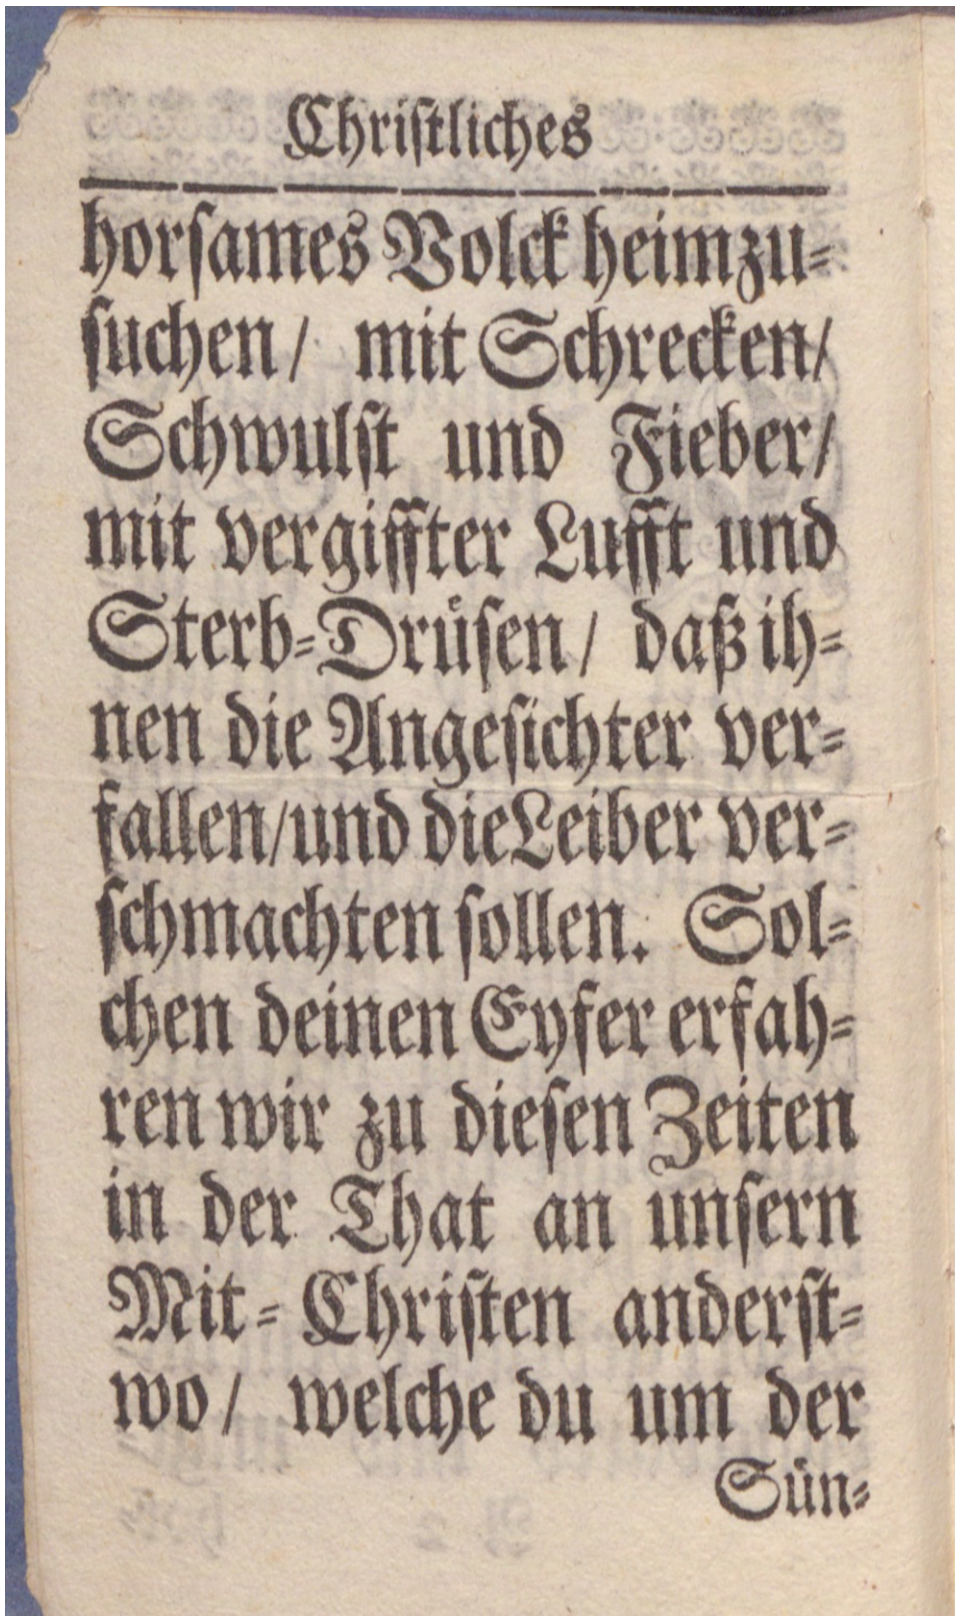 Christliches
horſames Volck heimzu-
ſuchen/ mit Schrecken/
Schwulſt und Fieber/
mit vergiffter Lufft und
Sterb-Druͤſen/ daß ih-
nen die Angeſichter ver-
fallen/und die Leiber ver-
ſchmachten ſollen. Sol-
chen deinen Eyfer erfah-
ren wir zu dieſen Zeiten
in der That an unſern
Mit-Chriſten anderſt-
wo/ welche du um der
Sün-